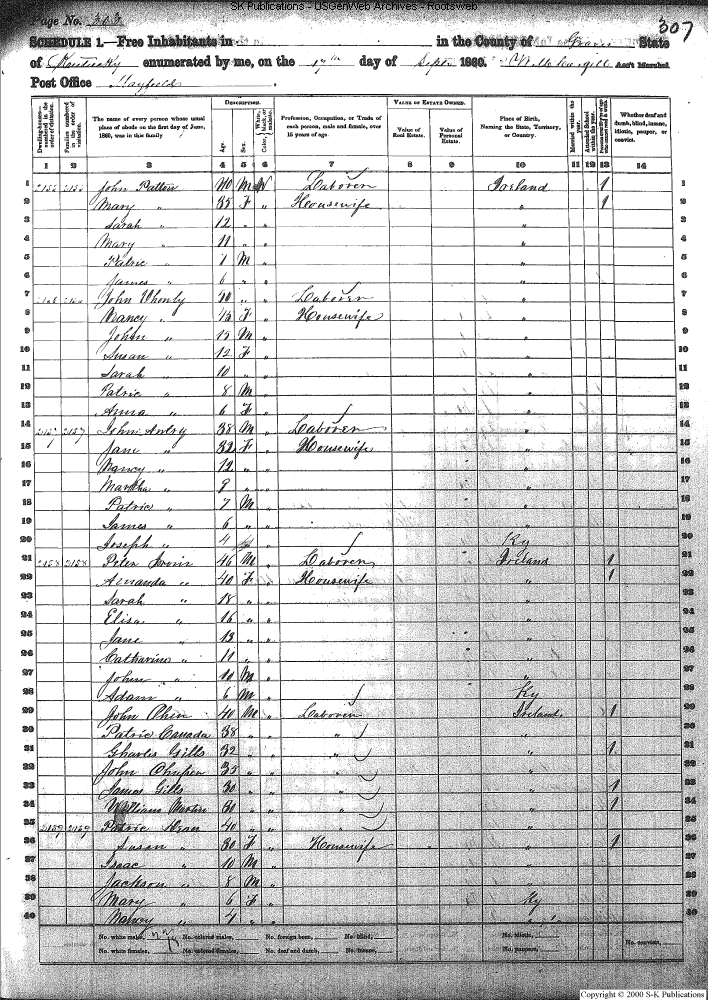 SK Publications - USGenWeb Archives - Rootsweb
Page No. 303
307
SCHEDULE 1.—Free Inhabitants in in the County of Graves State
of Kentucky enumerated by me, on the 17th day of Sept 1860. Ass't Marshal.
Post Office Mayfield
Dwelling-houses—numbered in the order of visitation.
Families numbered in the order of visitation.
The name of every person whose usual place of abode on the first day of June, 1860, was in this family
DESCRIPTION.
Age.
Sex.
Color, White, black, or mulatto.
Profession, Occupation, or Trade of each person, male and female, over 15 years of age.
VALUE OF ESTATE OWNED.
Value of Real Estate.
Value of Personal Estate.
Place of Birth, Naming the State, Territory, or Country.
Married within the year.
Attended School within the year.
Whether deaf and dumb, blind, insane, idiotic, pauper, or convict.
1 2 3 4 5 6 7 8 9 10 11 12 13 14
1 2155 2155 John Patton 40 M W Laborer Ireland 1 1
2 Mary " 35 F " Housewife " 1 2
3 Sarah " 12 " " " 3
4 Mary " 11 " " " 4
5 Patric " 1 M " " 5
6 James " 6 " " " 6
7 John 20 " " Laborer " 7
8 Nancy " F " Housewife " 8
9 John " 15 M " " 9
10 Susan " 12 F " " 10
11 Sarah " 10 " " " 11
12 Patric " 8 M " " 12
13 Anna " 6 F " " 13
14 2157 2157 John 38 M " Laborer " 14
15 Jane " 32 F " Housewife " 15
16 Nancy " 12 " " " 16
17 Martha " 9 " " " 17
18 Patric " 7 M " " 18
19 James " 6 " " " 19
20 Joseph " 4 " Ky 20
21 2158 2158 Peter Irvin 46 M " Laborer Ireland 1 21
22 Amanda " 40 F " Housewife " 1 22
23 Sarah " 18 " " " 23
24 Elisa " 16 " " " 24
25 Jane " 13 " " " 25
26 Catharine " 11 " " " 26
27 John " 10 M " " 27
28 Adam " 6 M " Ky 28
29 John 40 M " Laborer Ireland 1 29
30 Patric Canada 38 " " " " 30
31 Charles Gills 32 " " " " 1 31
32 John 35 " " " " 32
33 James Gills 30 " " " " 1 33
34 William 30 " " " " 1 34
35 2159 2159 Patric 40 " " " " 35
36 Susan " 30 F " Housewife " 1 36
37 Isaac " 10 M " " 37
38 Jackson " 8 M " " 38
39 Mary " 6 F " Ky 39
40 Nancy " 4 " " " 40
No. white males, No. colored males, No. foreign born, No. blind, No. idiotic, No. convicts,
No. white females, No. colored females, No. deaf and dumb, No. insane, No. paupers,
Copyright © 2000 S-K Publications